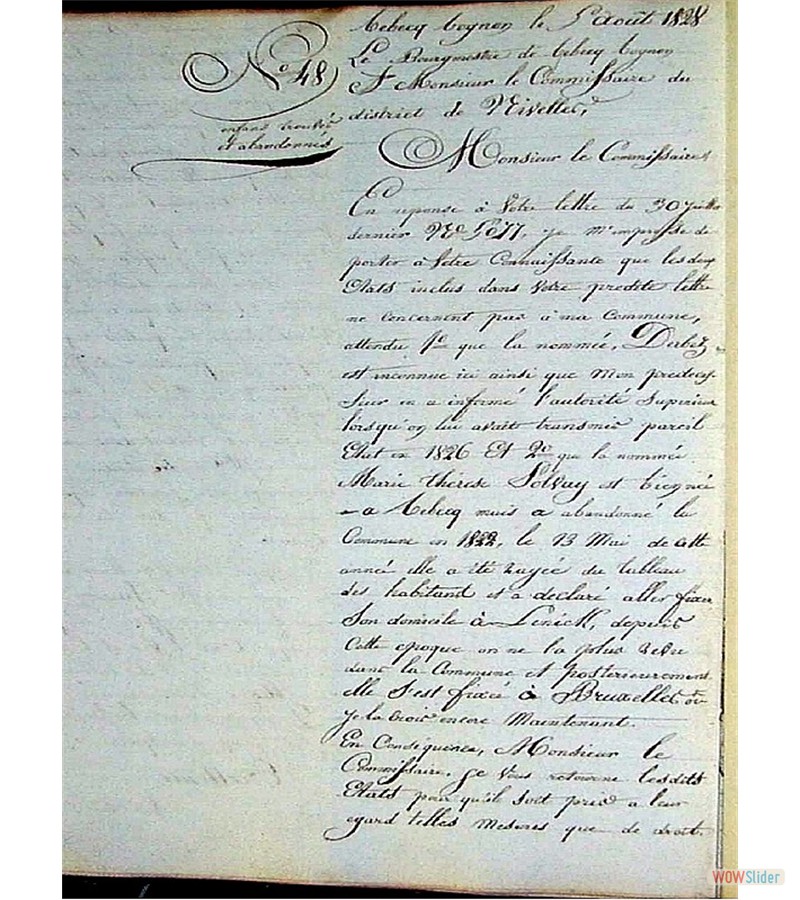 Rebecq Rognon le 5 Août 1828
Le Bourgmestre de Rebecq Rognon
A Monsieur le Commissaire du
district de Nivelles,
No. 48
enfans trouvés
et abandonnés
Monsieur le Commissaire
En reponse à Votre lettre du 30 juillet
dernier No je m'empresse de
porter à Votre Connaissance que les deux
Etats inclus dans Votre predite lettre
ne concernent pas à ma Commune,
attendu 1o que la nommée, Derbez
est inconnue ici ainsi que Mon predeces-
seur en a informé l'autorité Superieure
lorsqu'on lui avait transmis pareil
Etat en 1826 Et 2o que la nommée
Marie thérese Solvay est bien née
a Rebecq mais a abandonné la
Commune en 1822, le 13 Mai de cette
année elle a été rayée du tableau
des habitans et a declaré aller fixer
Son domicile à Lenick, depuis
Cette epoque on ne la plus revue
dans la Commune et posterieurement
elle s'est fixée à Bruxelles où
je la crois encore Maintenant.
En Conséquence, Monsieur le
Commissaire, je Vous retourne lesdits
Etats pour qu'il soit pris a leur
egard telles Mesures que de droit.
WOWSlider